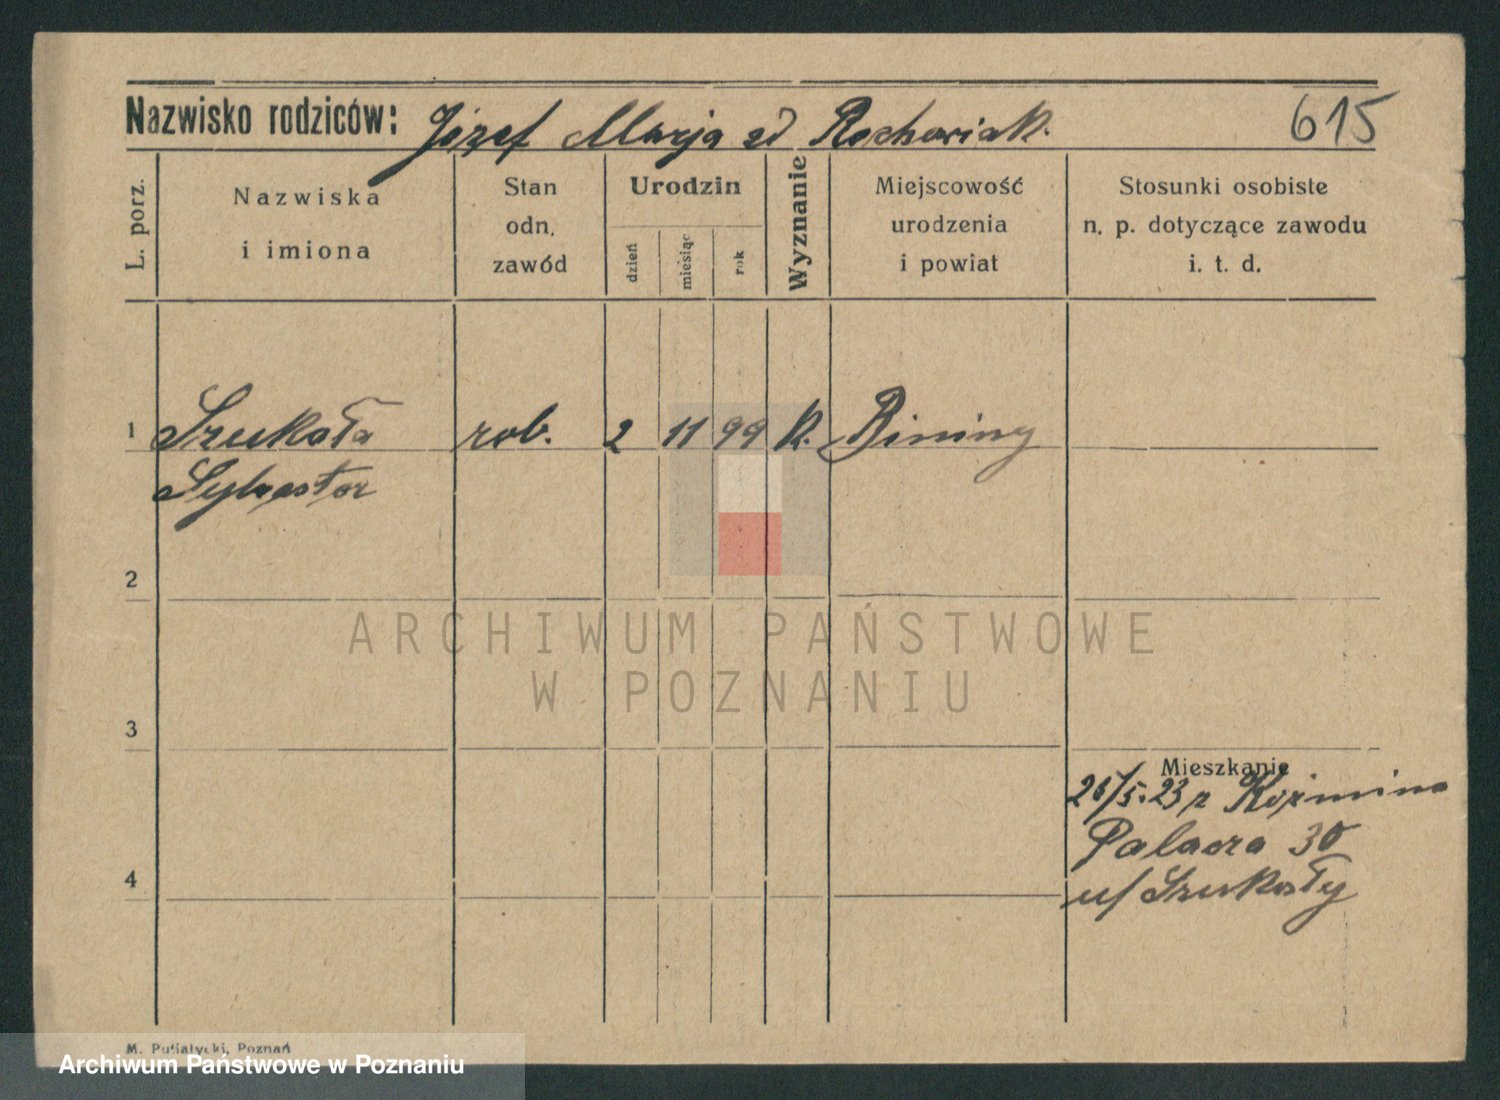 Nazwisko rodziców: Józef Marja zd Rochowiak. 615
L. porz.
Nazwiska
i imiona
Stan
odn.
zawód
Urodzin
dzień
miesiąc
rok
Wyznanie
Miejscowość
urodzenia
i powiat
Stosunki osobiste
n. p. dotyczące zawodu
i. t. d.
1 Szukała rob. 2 11 99 k. Bininy
Sylwester
2
ARCHIWUM PAŃSTWOWE
W POZNANIU
3
Mieszkanie
26/5.23 z Koźmina
Palacza 30
u/ Szukały
4
M. Putiatycki, Poznań
Archiwum Państwowe w Poznaniu